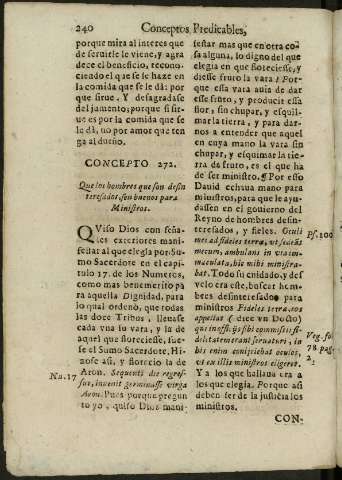 240 Conceptos Predicables,
porque mira al interes que
de seruirle le viene, y agra
dece el beneficio, recono-
ciendo el que se le haze en
la comida que se le dá: por
que sirue. Y desagradase
del jumento; porque si sir-
ue es por la comida que se
le dá, no por amor que ten
ga al dueño.
CONCEPTO 272.
Que los hombres que son desin
teresados, son buenos para
Ministros.
QViso Dios con seña-
les exteriores mani-
festar al que elegia por Su-
mo Sacerdote en el capi-
tulo 17. de los Numeros,
como mas benemerito pa-
ra aquella Dignidad, para
lo qual ordenó, que rodas
las doce Tribus, lleuase
cada vna su vara, y la de
aquel que floreciesse, fue-
se el Sumo Sacerdote. Hi-
zose asi, y florecio la de
Aron. Sequenti die regres-
Nu. 17
sus, inuenit germinasse virga
Aron. Pues porque pregun
to yo, quiso Dios mani-
festar mas que en otra co-
sa alguna, lo digno del que
elegia en que floreciesse, y
diesse fruto la vara? Por-
que esta vara auia de dar
esse fruto, y producir essa
flor, sin chupar, y esquil-
mar la tierra, y para dar-
nos a entender que aquel
en cuya mano la vara sin
chupar, y esquimar la tie-
rra de fruto, es el que ha
de ser ministro. ¶ Por esso
Dauid echaua mano para
ministros, para que le ayu-
dassen en el gouierno del
Reyno de hombres desin-
teresados, y fieles. Oculi
mei ad fideles terræ, vt sedeãt
Ps. 100
mecum, ambulans in via im-
maculata, hic mihi ministra-
bat. Todo su cuidado, y des
velo era este, buscar hom-
bres desinteresados para
ministros Fideles terræ, eos
appellat (dice vn Docto)
qui inoffẽsis sibi commissis fi-
delitatem erant seruaturi, in
Veg. fo
bis enim conijciebat oculos,
78. pag.
vt ex illis ministros eligeret.
2.
Y a los que hallaua era a
los que elegia. Porque asi
deben ser de la justicia los
ministros.
CON-